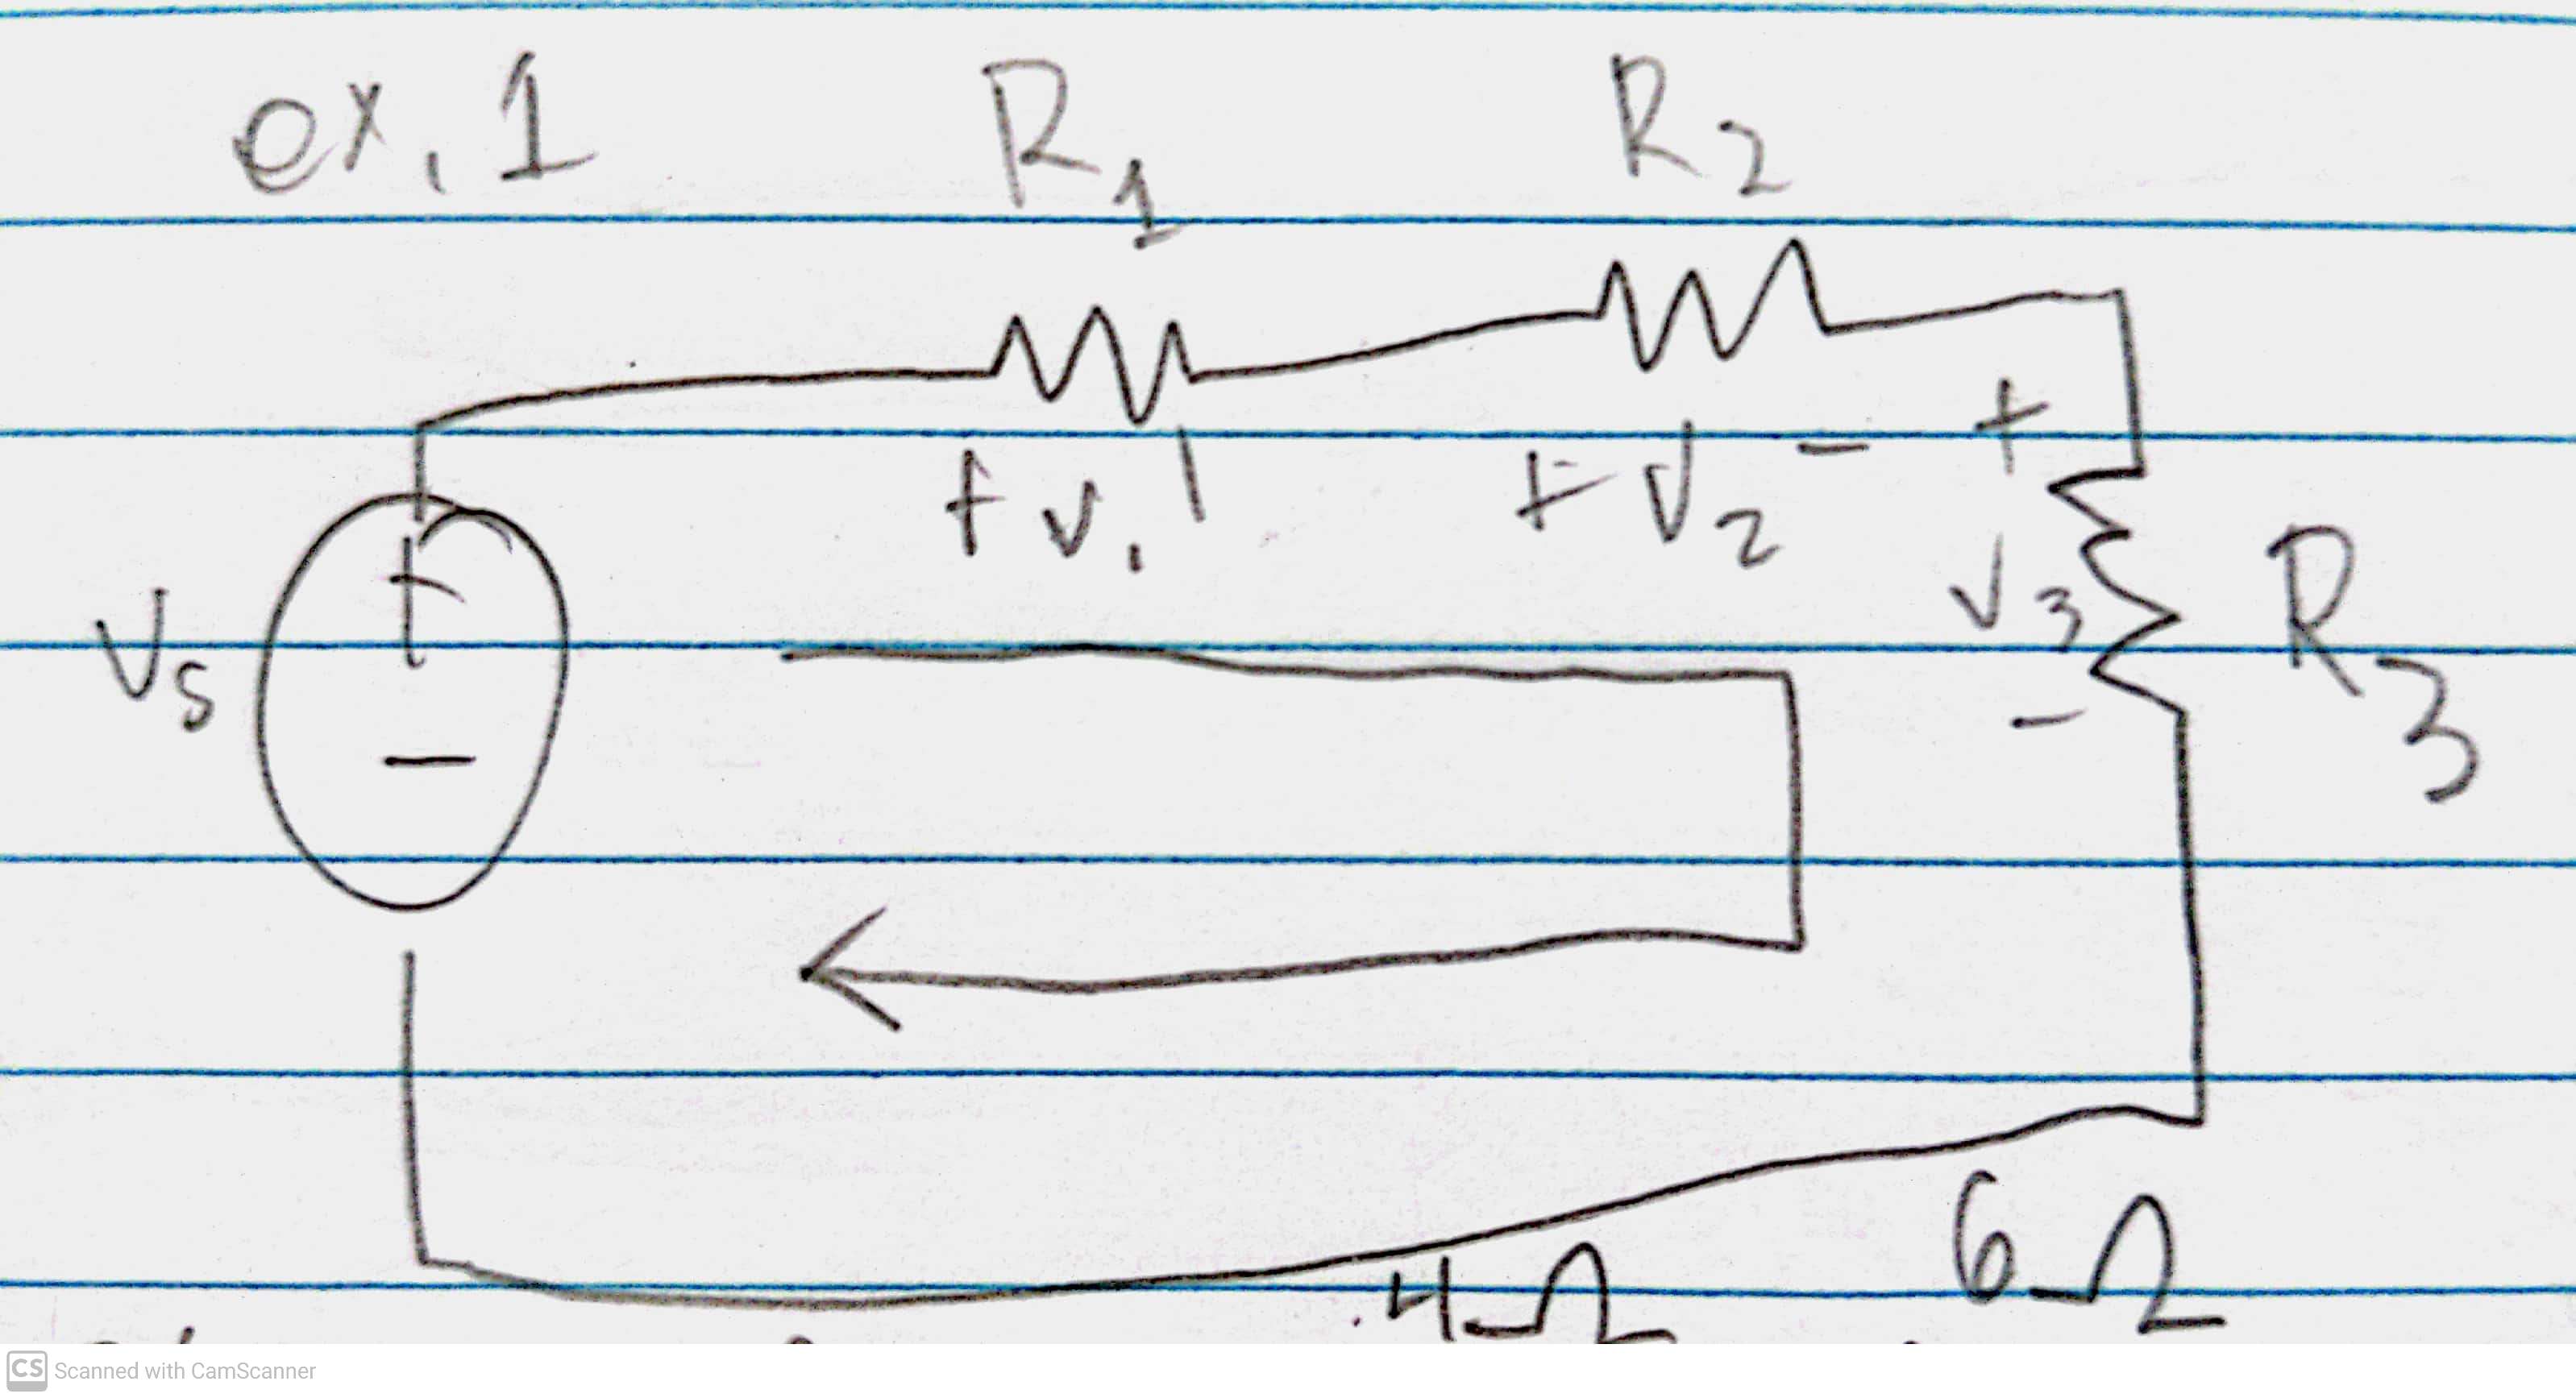 ex. 1
R1
R2
+ v1 -
+ V2 -
+
Vs
+
-
V3
R3
-
4Ω
6Ω
CS Scanned with CamScanner